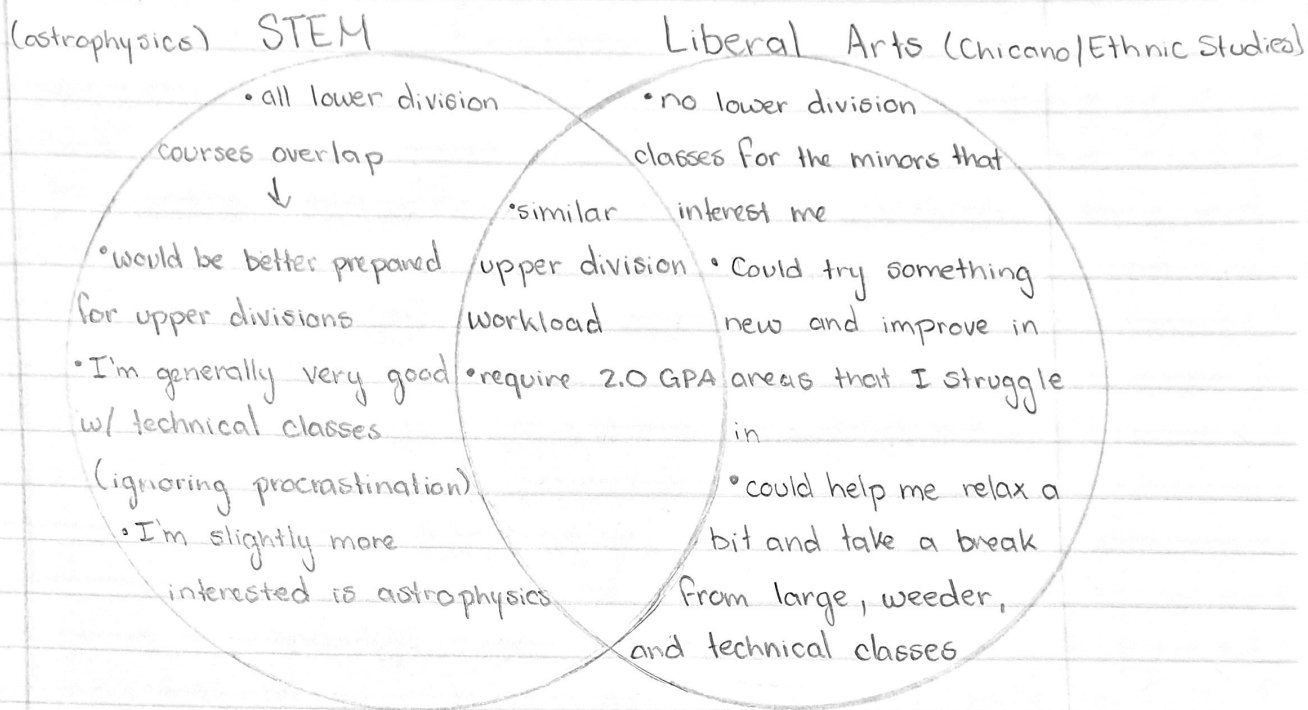 (astrophysics) STEM
Liberal Arts (Chicano/Ethnic Studies)
• all lower division
courses overlap
↓
• would be better prepared
for upper divisions
• I'm generally very good
w/ technical classes
(ignoring procrastination)
• I'm slightly more
interested is astrophysics
• similar
upper division
workload
• require 2.0 GPA
• no lower division
classes for the minors that
interest me
• Could try something
new and improve in
areas that I struggle
in
• could help me relax a
bit and take a break
from large, weeder,
and technical classes